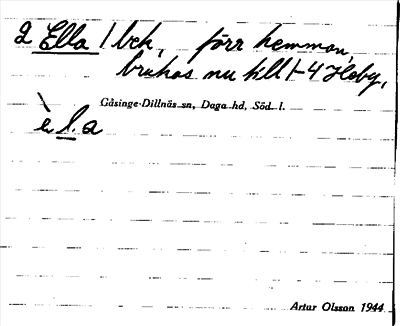 2 Ella 1 bch, förr hemman,
brukas nu till 1-4 Hoby,
Gåsinge-Dillnäs sn, Daga hd, Söd. l.
è l. a
Artur Olsson 1944